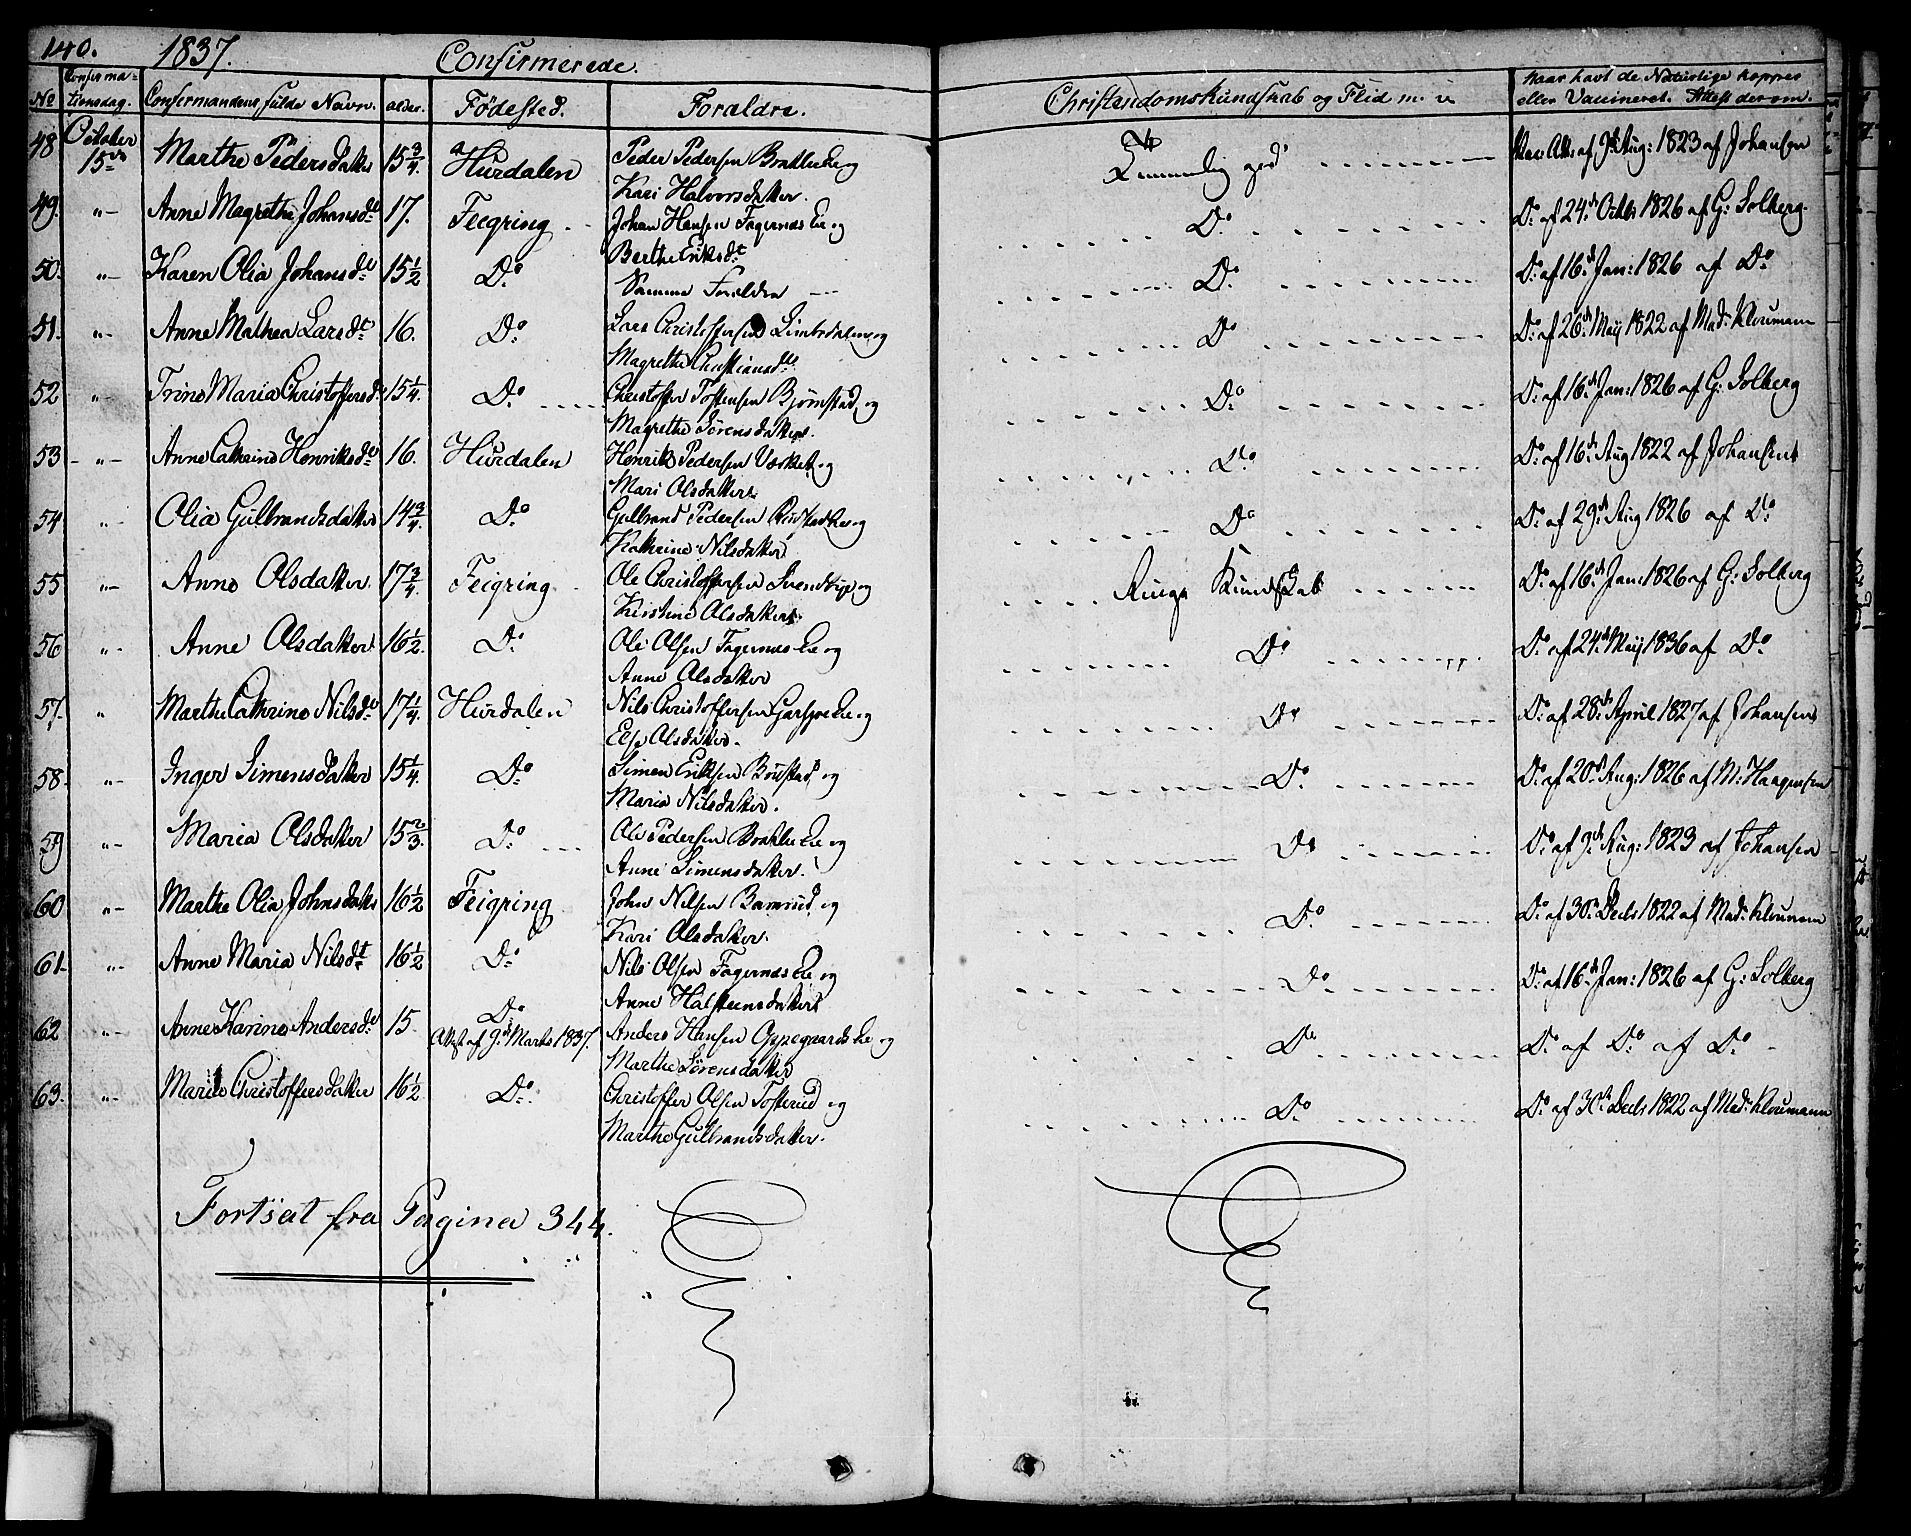 140. 1837. Confirmerede.
No Confirmationsdag. Confirmandens fulde Navn. alder. Fødested. Foraldre. Christendomskundskab og Flid m. v. Naar havt de Naturlige kopper eller Vaccineret. Attest derom.
48 October 15de Marthe Pedersdatter 15 3/4. Hurdalen Peder Pedersen og Kari Halvorsdatter. Temmelig god Vac: Att: af 9de Aug: 1823 af Johansen
49. "- Anne Magrethe Johansd: 17. Feigring Johan Hansen Fagernæs Eie og Berthe Eriksdt Do. Do af 24de Octbr 1826 af G: Solberg.
50. "- Karen Olia Johansd: 15 1/2 Do Samme Forældre Do Do af 16de Jan: 1826 af Do
51. "- Anne Mathea Larsdt 16. Do. Lars Christoffersen og Magrethe Christiansd: Do Do af 26de Maij 1822 af Mad: Kloumann
52 "- Trine Maria Christoffersd: 15 1/4. Do. Christoffer Tostensen Bjørnstad og Magrethe Sørensdatter. Do Do af 16de Jan: 1826 af G: Solberg
53 "- Anne Cathrine Henriksd: 16. Hurdalen Henrik Pedersen Værket og Mari Olsdatter. Do. Do af 16de Aug 1822 af Johansen
54 "- Olia Gulbrandsdatter 14 3/4. Do Gulbrand Pedersen og Kathrine Nilsdatter Do Do af 29de Aug 1826 af Do
55 "- Anne Olsdatter. 17 3/4. Feigring Ole Christoffersen og Kirstine Olsdatter. Ringe Kundskab Do af 16de Jan: 1826 af G: Solberg
56 "- Anne Olsdatter 16 1/2. Do Ole Olsen Fagernæs Eie og Anne Olsdatter Do Do af 24de Maij 1836 af Do
57. " Marthe Cathrine Nilsd: 17 1/4. Hurdalen Nils Christoffersen og Else Olsdatter. Do Do af 28de April 1827 af Johansen
58. "- Inger Simensdatter 15 1/4. Do Simen Eriksen og Maria Nilsdatter. Do. Do af 20de Aug: 1826 af M: Haagensen
59 "- Maria Olsdatter 15 2/3. Do. Ole Pedersen og Anne Simensdatter. Do Do af 9de Aug: 1823 af Johansen
60 "- Marthe Olia Johnsdatter 16 1/2 Feigring John Nilsen og Kari Olsdatter. Do. Do af 30te Decbr 1822 af Mad: Kloumann
61. "- Anne Maria Nilsdt. 16 1/2 Do Nils Olsen Fagernæs Eie og Anne Halsteensdatter Do Do af 16de Jan: 1826 af G: Solberg
62 "- Anne Karine Andersd: 15. Do Attest af 9de Marts 1837. Anders Hansen og Marthe Sørensdatter Do Do af Do af Do
63. "- Marite Christoffersdatter 16 1/2 Do. Christoffer Olsen Tosterud og Marthe Gulbrandsdatter. Do. Do af 30te Decbr 1822 af Mad: Kloumann
Fortsat fra Pagina 344.